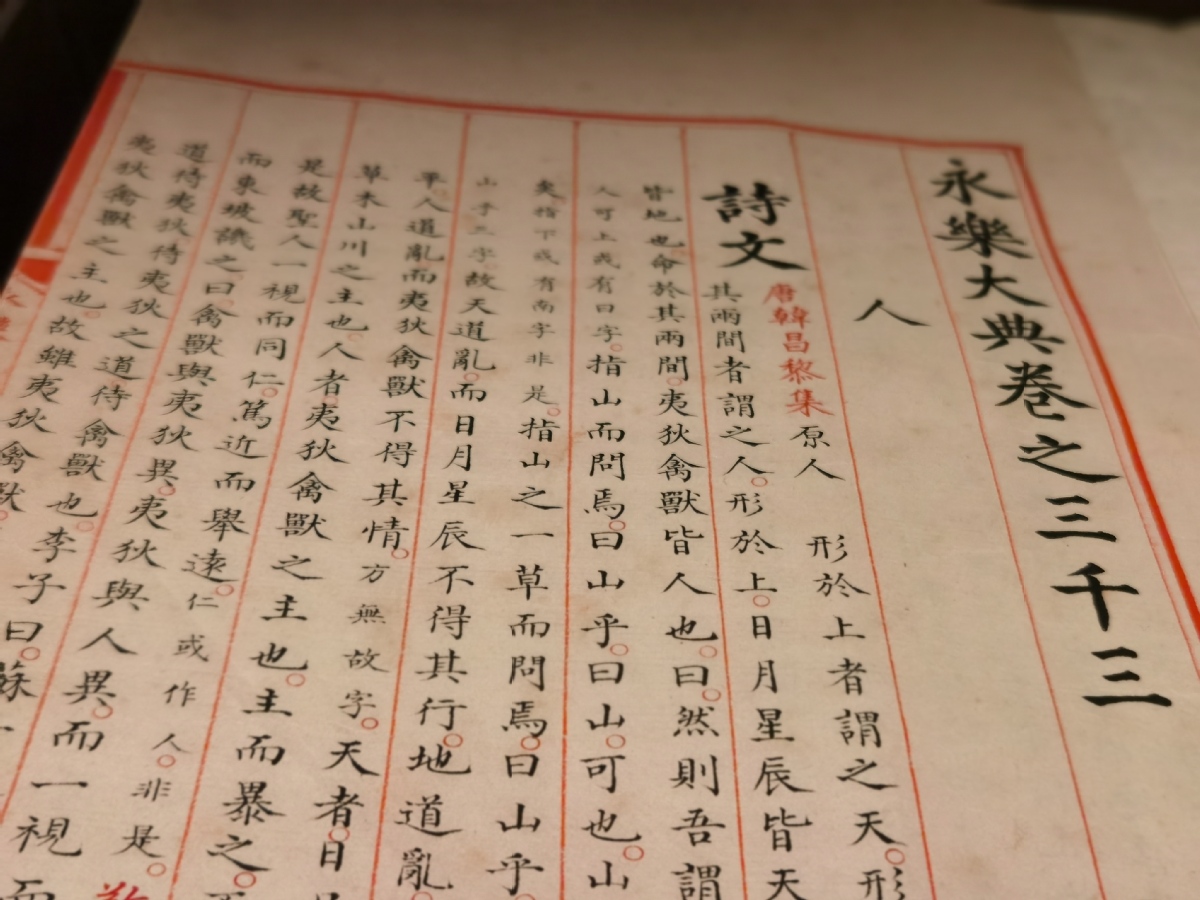 永樂大典卷之三千三
人
詩文
唐韓昌黎集原人 形於上者謂之天。形
其兩間者謂之人。形於上。日月星辰皆天
皆地也。命於其兩間。夷狄禽獸皆人也。曰。然則吾謂
人可上或有曰字。指山而問焉。曰山乎。曰山。可也。山
矣。指下或有南字非是。指山之一草而問焉。曰山乎。
山乎三字。故天道亂。而日月星辰不得其行。地道亂。
平。人道亂。而夷狄禽獸不得其情。方無故字。天者。日
草木山川之主也。人者。夷狄禽獸之主也。主而暴之。
是故聖人一視而同仁。篤近而舉遠。仁或作人。非是。
而東坡譏之。曰。禽獸與夷狄異。夷狄與人異。而一視而
道待夷狄。待夷狄之道待禽獸也。李子曰。蘇
夷狄禽獸之主也。故雖夷狄禽獸。